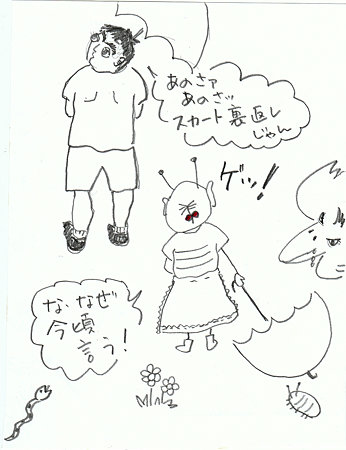 あのさァ
あのさッ
スカート裏返し
じゃん
ゲッ!
な、なぜ
今頃
言う!